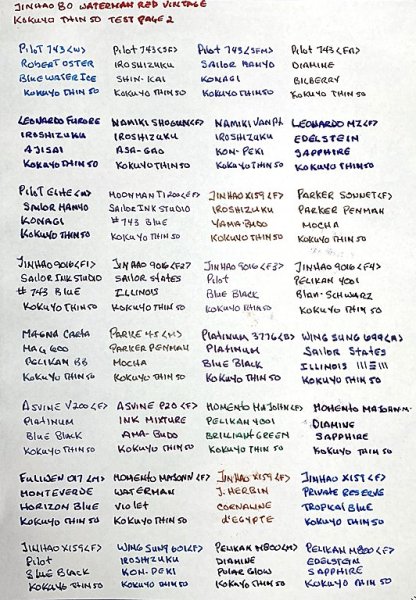 JINHAO 80 WATERMAN RED VINTAGE
KOKUYO THIN 50 TEST PAGE 2
Pilot 743 <W>
ROBERT OSTER
BLUE WATER ICE
KOKUYO THIN 50
Pilot 743 <SF>
IROSHIZUKU
SHIN-KAI
KOKUYO THIN 50
Pilot 743 <SFM>
SAILOR MANYO
KONAGI
KOKUYO THIN 50
Pilot 743 <FA>
DIAMINE
BILBERRY
KOKUYO THIN 50
LEONARDO FURORE
IROSHIZUKU
AJISAI
KOKUYO THIN 50
NAMIKI SHOGUN <F>
IROSHIZUKU
ASA-GAO
KOKUYO THIN 50
NAMIKI VANPA
IROSHIZUKU
KON-PEKI
KOKUYO THIN 50
LEONARDO MZ <F>
EDELSTEIN
SAPPHIRE
KOKUYO THIN 50
PILOT ELITE <M>
SAILOR MANYO
KONAGI
KOKUYO THIN 50
MOONMAN TI 200 <EF>
SAILOR INK STUDIO
#743 BLUE
KOKUYO THIN 50
JINHAO X159 <F>
IROSHIZUKU
YAMA-BUDO
KOKUYO THIN 50
PARKER SONNET <F>
PARKER PENMAN
MOCHA
KOKUYO THIN 50
JINHAO 9016 <F1>
SAILOR INK STUDIO
#743 BLUE
KOKUYO THIN 50
JINHAO 9016 <F2>
SAILOR STATES
ILLINOIS
KOKUYO THIN 50
JINHAO 9016 <F3>
Pilot
Blue Black
KOKUYO THIN 50
JINHAO 9016 <F4>
PELIKAN 4001
Blau-SCHWARZ
KOKUYO THIN 50
MAGNA CARTA
MAG 600
PELIKAN BB
KOKUYO THIN 50
PARKER 45 <M>
PARKER PENMAN
MOCHA
KOKUYO THIN 50
PLATINUM 3776 <B>
PLATINUM
Blue Black
KOKUYO THIN 50
WING SUNG 699 <M>
SAILOR STATES
ILLINOIS
KOKUYO THIN 50
ASVINE V200 <F>
PLATINUM
Blue Black
KOKUYO THIN 50
ASVINE P20 <F>
INK MIXTURE
AMA-BUDO
KOKUYO THIN 50
MOMENTO MAJOHN <F>
PELIKAN 4001
BRILLIANT GREEN
KOKUYO THIN 50
MOMENTO MAJOHN
DIAMINE
SAPPHIRE
KOKUYO THIN 50
FULIWEN 017 <M>
MONTEVERDE
HORIZON BLUE
KOKUYO THIN 50
MOMENTO MAJOHN <F>
WATERMAN
VIOLET
KOKUYO THIN 50
JINHAO X159 <F>
J. HERBIN
CORNALINE
d'EGYPTE
JINHAO X159 <F>
PRIVATE RESERVE
TROPICAL BLUE
KOKUYO THIN 50
JINHAO X159 <F>
Pilot
Blue Black
KOKUYO THIN 50
WING SUNG 601 <F>
IROSHIZUKU
KON-PEKI
KOKUYO THIN 50
PELIKAN M800 <M>
DIAMINE
POLAR GLOW
KOKUYO THIN 50
PELIKAN M800 <F>
EDELSTEIN
SAPPHIRE
KOKUYO THIN 50